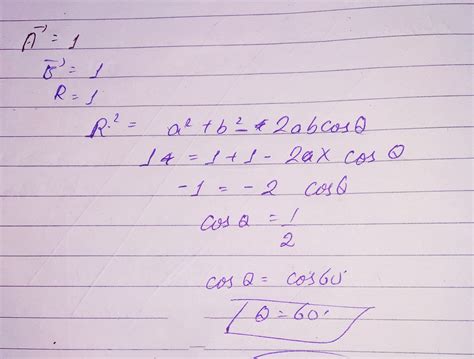 A⃗ = 1
B⃗ = 1
R = 1
R² = a² + b² - 2abcosθ
1 = 1 + 1 - 2ax cos θ
-1 = -2 cosθ
cos θ = 1/2
cos θ = cos 60°
θ = 60°